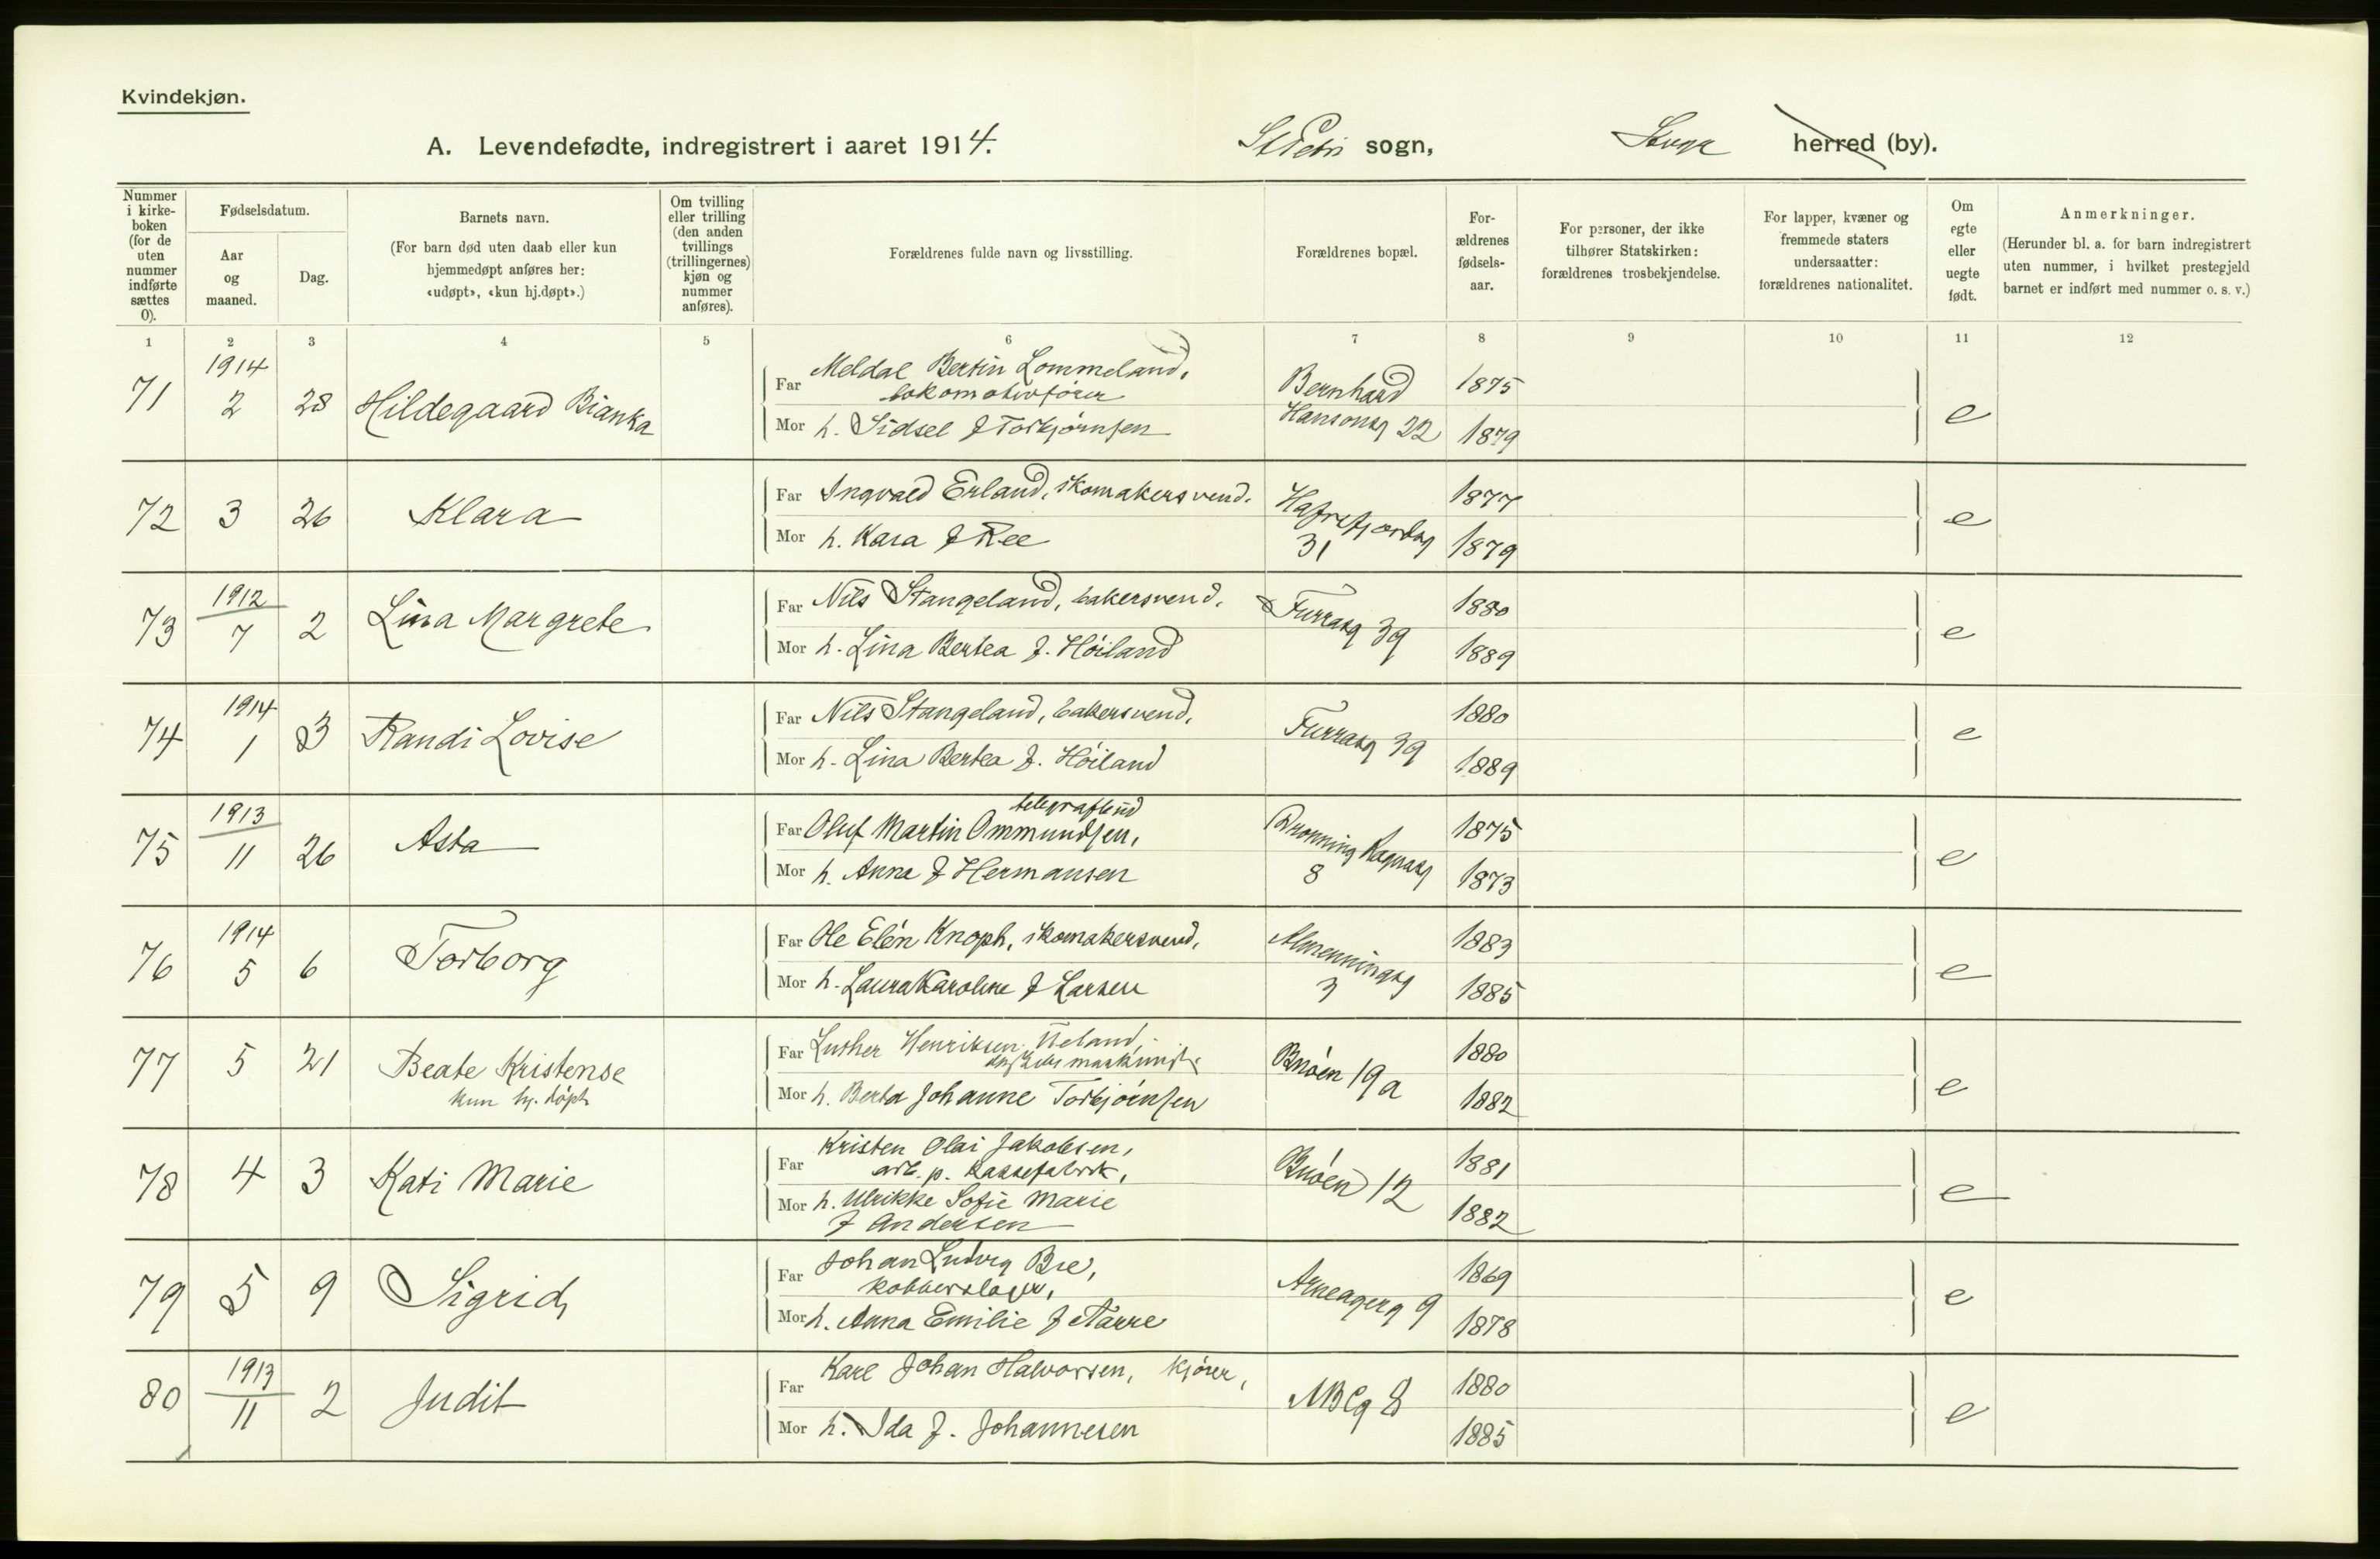 Kvindekjøn.
A. Levendefødte, indregistrert i aaret 1914. St Petri sogn, herred (by).
Nummer i kirke-boken (for de uten nummer indførte sættes 0).
Fødselsdatum.
Aar og maaned.
Dag.
Barnets navn.
(For barn død uten daab eller kun hjemmedøpt anføres her: «udøpt», «kun hj.døpt».)
Om tvilling eller trilling (den anden tvillings (trillingernes) kjøn og nummer anføres).
Forældrenes fulde navn og livsstilling.
Forældrenes bopæl.
For-ældrenes fødsels-aar.
For personer, der ikke tilhører Statskirken: forældrenes trosbekjendelse.
For lapper, kvæner og fremmede staters undersaatter: forældrenes nationalitet.
Om egte eller uegte født.
Anmerkninger.
(Herunder bl. a. for barn indregistrert uten nummer, i hvilket prestegjeld barnet er indført med nummer o. s. v.)
1 2 3 4 5 6 7 8 9 10 11 12
71 1914 2 28 Hildegaard Bianka
Far Meldal Bertin Lommeland, lokomotivfører
Mor h. Sidsel f Torbjørnsen
Bernhard Hansensg 22
1875
1879
e
72 3 26 Klara
Far Ingvald Erland, skomakersvend.
Mor h. Kara f Ree
Hafrsfjordsg 31
1877
1879
e
73 1912 7 2 Lina Margrete
Far Nils Stangeland, bakersvend.
Mor h. Lina Bertea f. Høiland
Furrasg 39
1880
1889
e
74 1914 1 3 Randi Lovise
Far Nils Stangeland, bakersvend,
Mor h. Lina Bertea f. Høiland
Furrasg 39
1880
1889
e
75 1913 11 26 Asta
Far Oluf Martin Ommundsen, telegrafbud
Mor h. Anna f Hermansen
Dronning Ragnasg 8
1875
1873
e
76 1914 5 6 Torborg
Far Ole Elén Knoph, skomakersvend,
Mor h. Laura Karoline f Larsen
Almenningsg 3
1883
1885
e
77 5 21 Beate Kristense
kun hj. døpt
Far Luther Henriksen Ueland, maskinist
Mor h. Berta Johanne Torbjørnsen
Bruén 19a
1880
1882
e
78 4 3 Kati Marie
Far Kristen Olai Jakobsen, arb. p. kassefabrik,
Mor h. Ulrikke Sofie Marie f Andersen
Bruén 12
1881
1882
e
79 5 9 Sigrid
Far Johan Ludvig Bre, kobberslager,
Mor h. Anna Emilie f Aarre
Arneagerg 9
1869
1878
e
80 1913 11 2 Judit
Far Karl Johan Halvorsen, kjører,
Mor h. Ida f. Johannesen
8
1880
1885
e